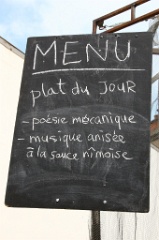 MENU
plat du JOUR
- poésie mécanique
- musique anisée
à la sauce nîmoise